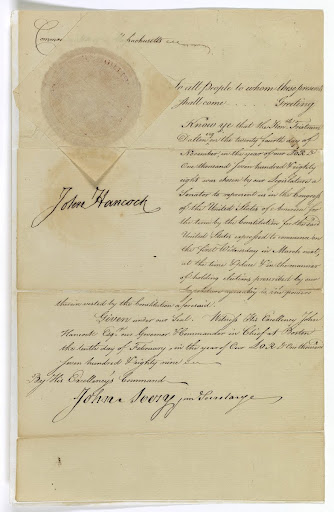 Common
Massachusetts
To all People to whom these presents
shall come . . . . Greeting
Know ye that the Hon. Tristram
Dalton Esq. on the twenty fourth day of
November in the year of our Lord
One thousand Seven hundred & eighty
eight was chosen by our Legislature a
Senator to represent us in the Congress
of the United States of America for
the term by the Constitution for the said
United States expressed to commence on
the first Wednesday in March next,
at the time & place & in the manner
of holding elections prescribed by our
John Hancock
Legislature agreeably to the powers
therein vested by the Constitution aforesaid.
Given under our Seal. Witness His Excellency John
Hancock Esq. our Governor & Commander in Chief at Boston
the tenth day of February in the year of Our Lord One thousand
Seven hundred & eighty nine
By His Excellency's Command
John Avery jun Secretary